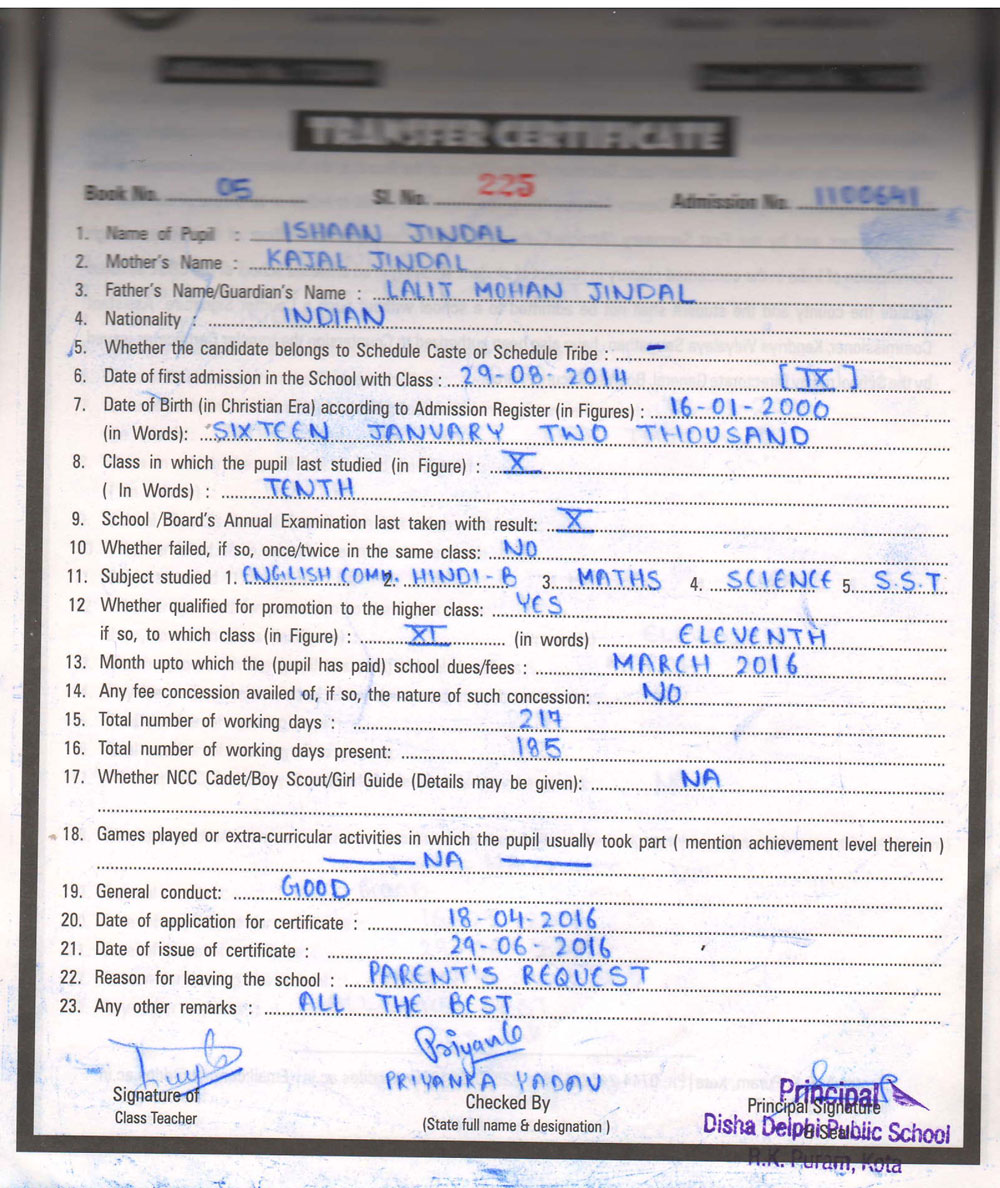 TRANSFER CERTIFICATE
Book No. 05 Sl. No. 225 Admission No. 1100641
1. Name of Pupil : ISHAAN JINDAL
2. Mother's Name : KAJAL JINDAL
3. Father's Name/Guardian's Name : LALIT MOHAN JINDAL
4. Nationality : INDIAN
5. Whether the candidate belongs to Schedule Caste or Schedule Tribe : -
6. Date of first admission in the School with Class : 29-08-2014 [IX]
7. Date of Birth (in Christian Era) according to Admission Register (in Figures) : 16-01-2000
(in Words): SIXTEEN JANUARY TWO THOUSAND
8. Class in which the pupil last studied (in Figure) : X
( In Words) : TENTH
9. School /Board's Annual Examination last taken with result: X
10 Whether failed, if so, once/twice in the same class: NO
11. Subject studied 1. ENGLISH COMM. 2. HINDI-B 3. MATHS 4. SCIENCE 5. S.S.T
12 Whether qualified for promotion to the higher class: YES
if so, to which class (in Figure) : XI (in words) ELEVENTH
13. Month upto which the (pupil has paid) school dues/fees : MARCH 2016
14. Any fee concession availed of, if so, the nature of such concession: NO
15. Total number of working days : 217
16. Total number of working days present: 185
17. Whether NCC Cadet/Boy Scout/Girl Guide (Details may be given): NA
18. Games played or extra-curricular activities in which the pupil usually took part ( mention achievement level therein )
NA
19. General conduct: GOOD
20. Date of application for certificate : 18-04-2016
21. Date of issue of certificate : 29-06-2016
22. Reason for leaving the school : PARENT'S REQUEST
23. Any other remarks : ALL THE BEST
PRIYANKA YADAV
Signature of Class Teacher
Checked By
(State full name & designation )
Principal Signature
& Seal
Principal
Disha Delphi Public School
R.K. Puram, Kota